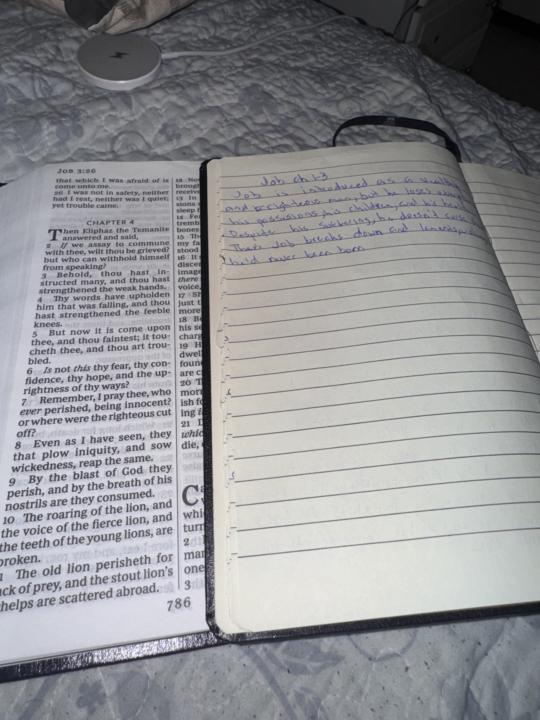 JOB 3:26
that which I was afraid of is
come unto me.
26 I was not in safety, neither
had I rest, neither was I quiet;
yet trouble came.
CHAPTER 4
Then Eliphaz the Temanite
answered and said,
2 If we assay to commune
with thee, wilt thou be grieved?
but who can withhold himself
from speaking?
3 Behold, thou hast in-
structed many, and thou hast
strengthened the weak hands.
4 Thy words have upholden
him that was falling, and thou
hast strengthened the feeble
knees.
5 But now it is come upon
thee, and thou faintest; it tou-
cheth thee, and thou art trou-
bled.
6 Is not this thy fear, thy con-
fidence, thy hope, and the up-
rightness of thy ways?
7 Remember, I pray thee, who
ever perished, being innocent?
or where were the righteous cut
off?
8 Even as I have seen, they
that plow iniquity, and sow
wickedness, reap the same.
9 By the blast of God they
perish, and by the breath of his
nostrils are they consumed.
10 The roaring of the lion, and
the voice of the fierce lion, and
the teeth of the young lions, are
broken.
The old lion perisheth for
of prey, and the stout lion's
are scattered abroad.
786
Job ch 1-3
Job is introduced as a
and righteous man, but he loses
his possessions, his children, and his
Despite his suffering, he doesn't
Then Job breaks down and
he'd never been born